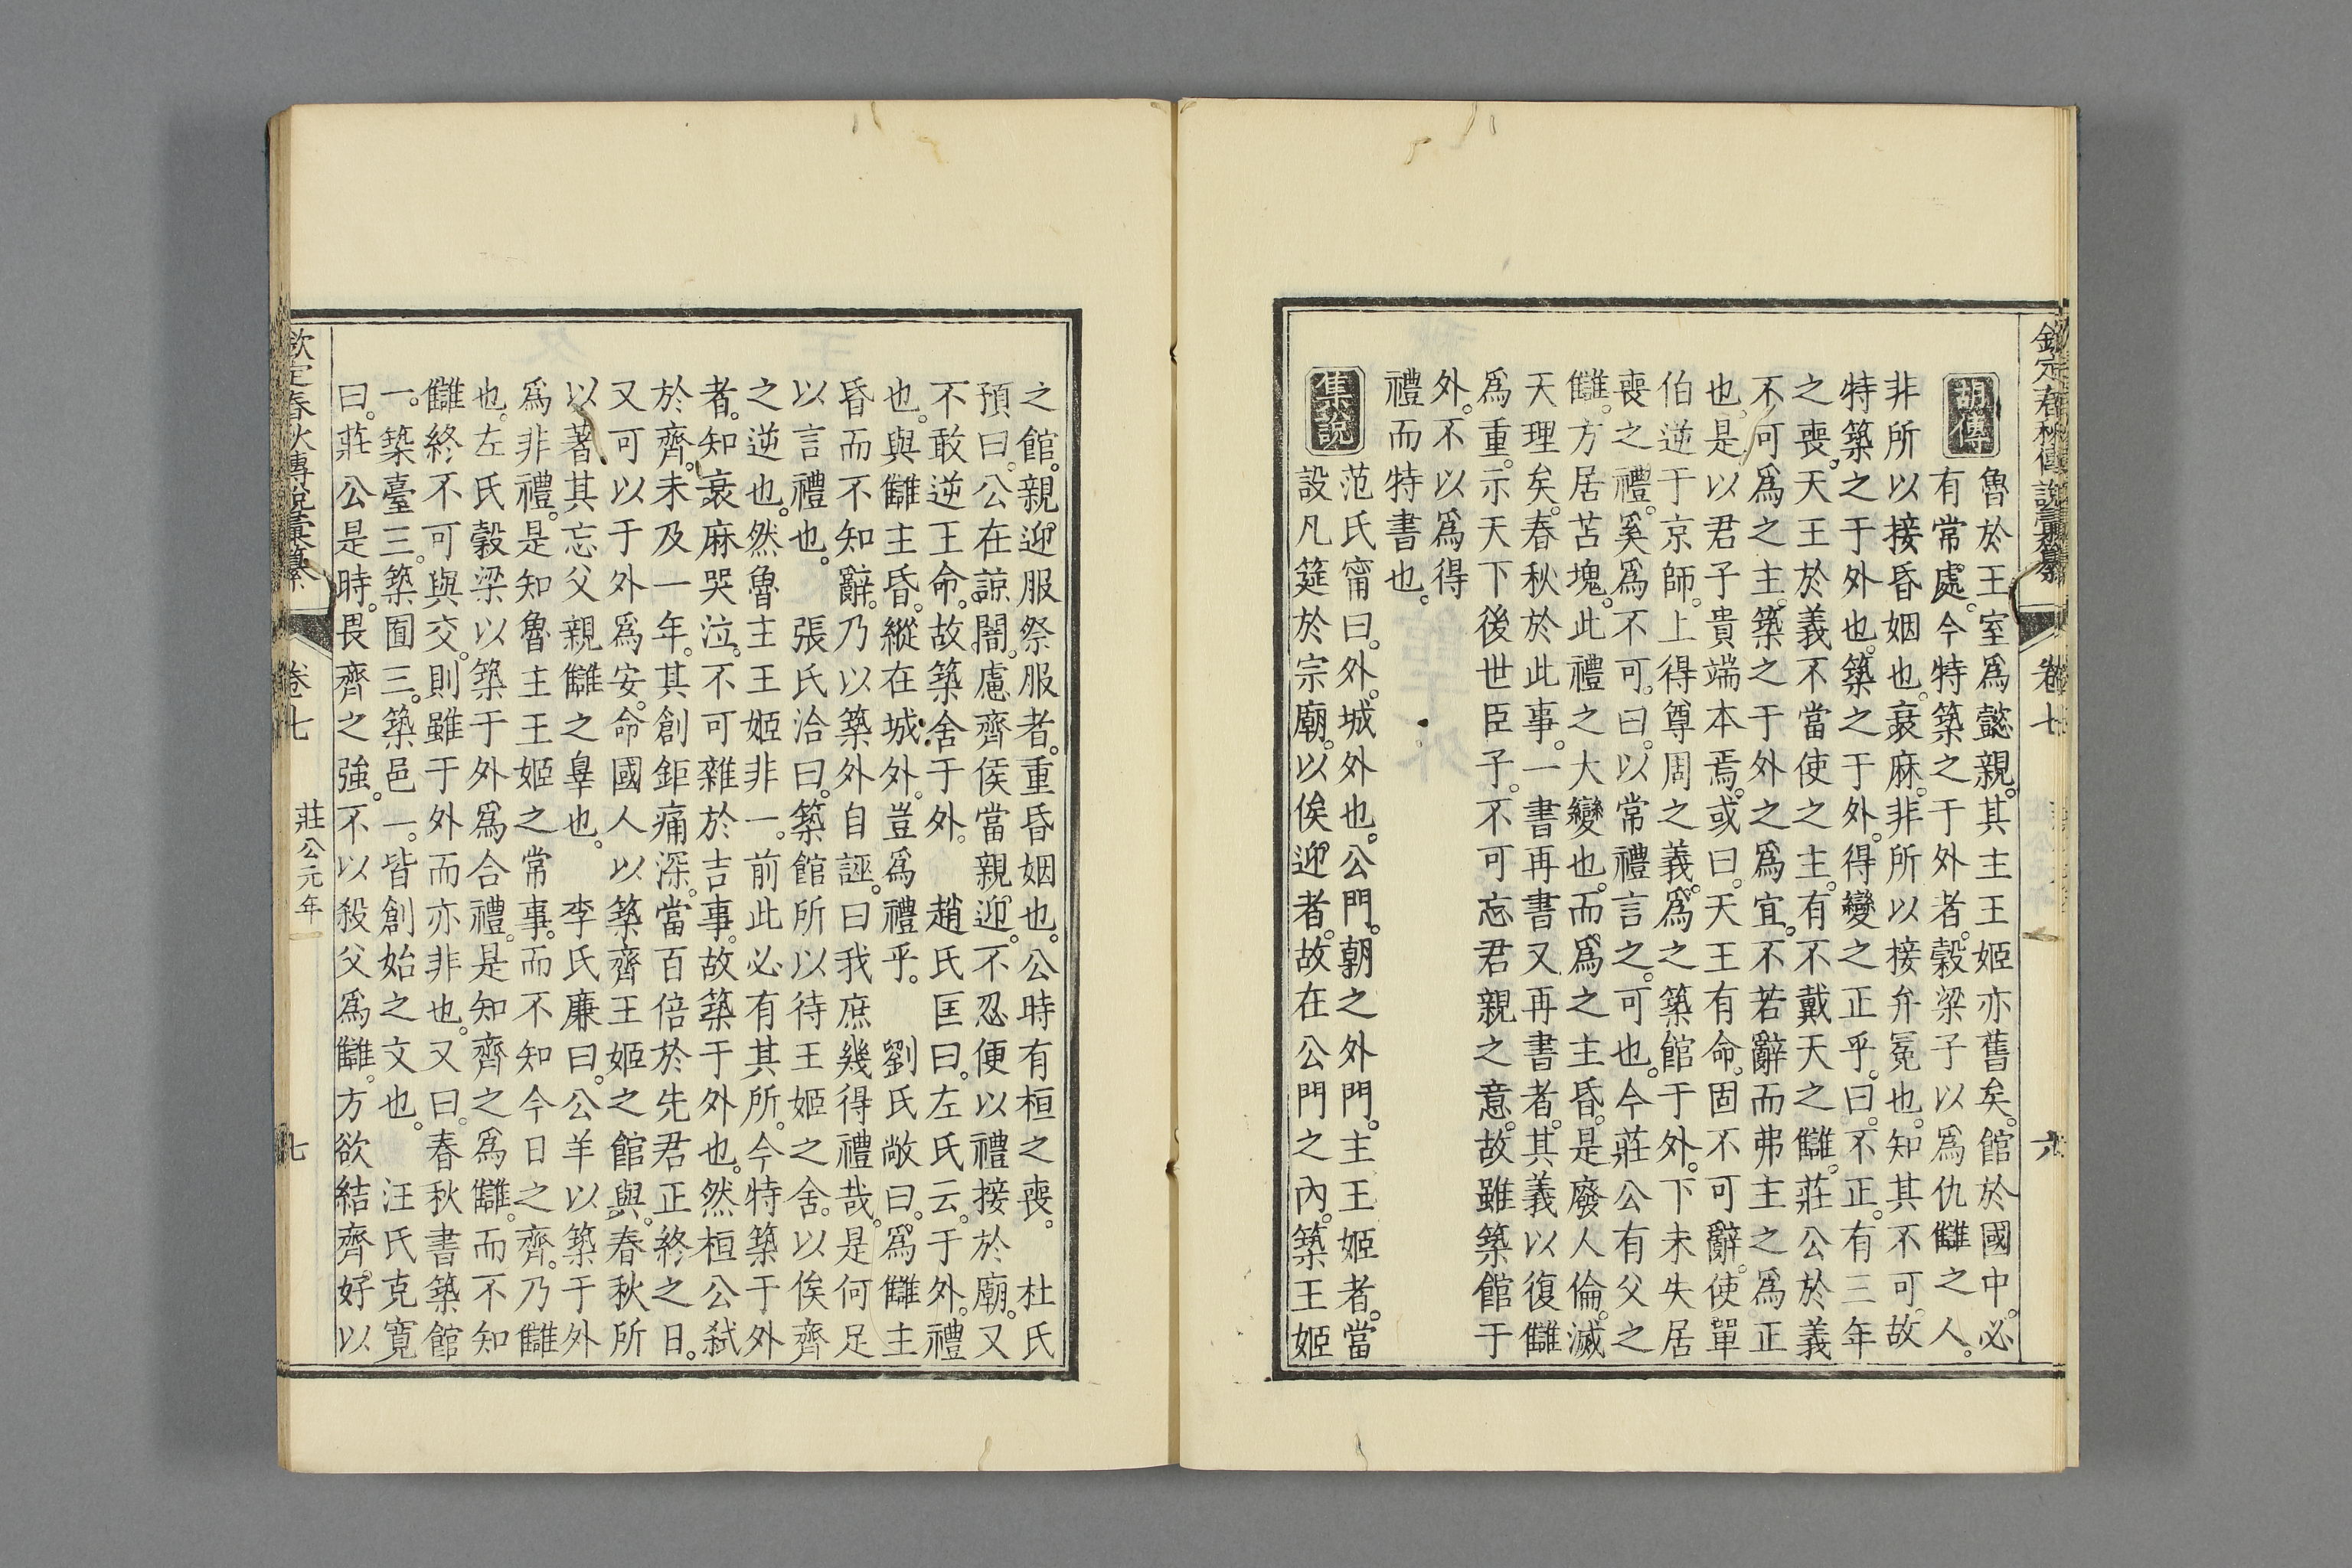 欽定春秋傳說彙纂 卷七 六
胡傳
魯於王室爲懿親。其主王姬亦舊矣。館於國中。必
有常處。今特築之于外者。穀梁子以爲仇讎之人。
非所以接昏姻也。衰麻。非所以接弁冕也。知其不可。故
特築之于外也。築之于外。得變之正乎。曰。不正。有三年
之喪。天王於義不當使之主。有不戴天之讎。莊公於義
不可爲之主。築之于外之爲宜。不若辭而弗主之爲正
也。是以君子貴端本焉。或曰。天王有命。固不可辭。使單
伯逆于京師。上得尊周之義。爲之築館于外。下未失居
喪之禮。奚爲不可。曰。以常禮言之。可也。今莊公有父之
讎。方居苫塊。此禮之大變也。而爲之主昏。是廢人倫。滅
天理矣。春秋於此事。一書再書又再書者。其義以復讎
爲重。示天下後世臣子。不可忘君親之意。故雖築館于
外。不以爲得
禮而特書也。
集說
范氏甯曰。外。城外也。公門。朝之外門。主王姬者。當
設几筵於宗廟。以俟迎者。故在公門之內。築王姬
之館。親迎。服祭服者。重昏姻也。公時有桓之喪。 杜氏
預曰。公在諒闇。慮齊侯當親迎。不忍便以禮接於廟。又
不敢逆王命。故築舍于外。 趙氏匡曰。左氏云。于外。禮
也。與讎主昏。縱在城外。豈爲禮乎。 劉氏敞曰。爲讎主
昏而不知辭。乃以築外自誣。曰我庶幾得禮哉。是何足
以言禮也。 張氏洽曰。築館所以待王姬之舍。以俟齊
之逆也。然魯主王姬非一。前此必有其所。今特築于外
者。知衰麻哭泣。不可雜於吉事。故築于外也。然桓公弒
於齊。未及一年。其創鉅痛深。當百倍於先君正終之日。
又可以于外爲安。命國人以築齊王姬之館與。春秋所
以著其忘父親讎之辠也。 李氏廉曰。公羊以築于外
爲非禮。是知魯主王姬之常事。而不知今日之齊。乃讎
也。左氏穀梁以築于外爲合禮。是知齊之爲讎。而不知
讎終不可與交。則雖于外而亦非也。又曰。春秋書築館
一。築臺三。築囿三。築邑一。皆創始之文也。 汪氏克寬
曰。莊公是時。畏齊之強。不以殺父爲讎。方欲結齊好以
欽定春秋傳說彙纂 卷七 莊公元年 七